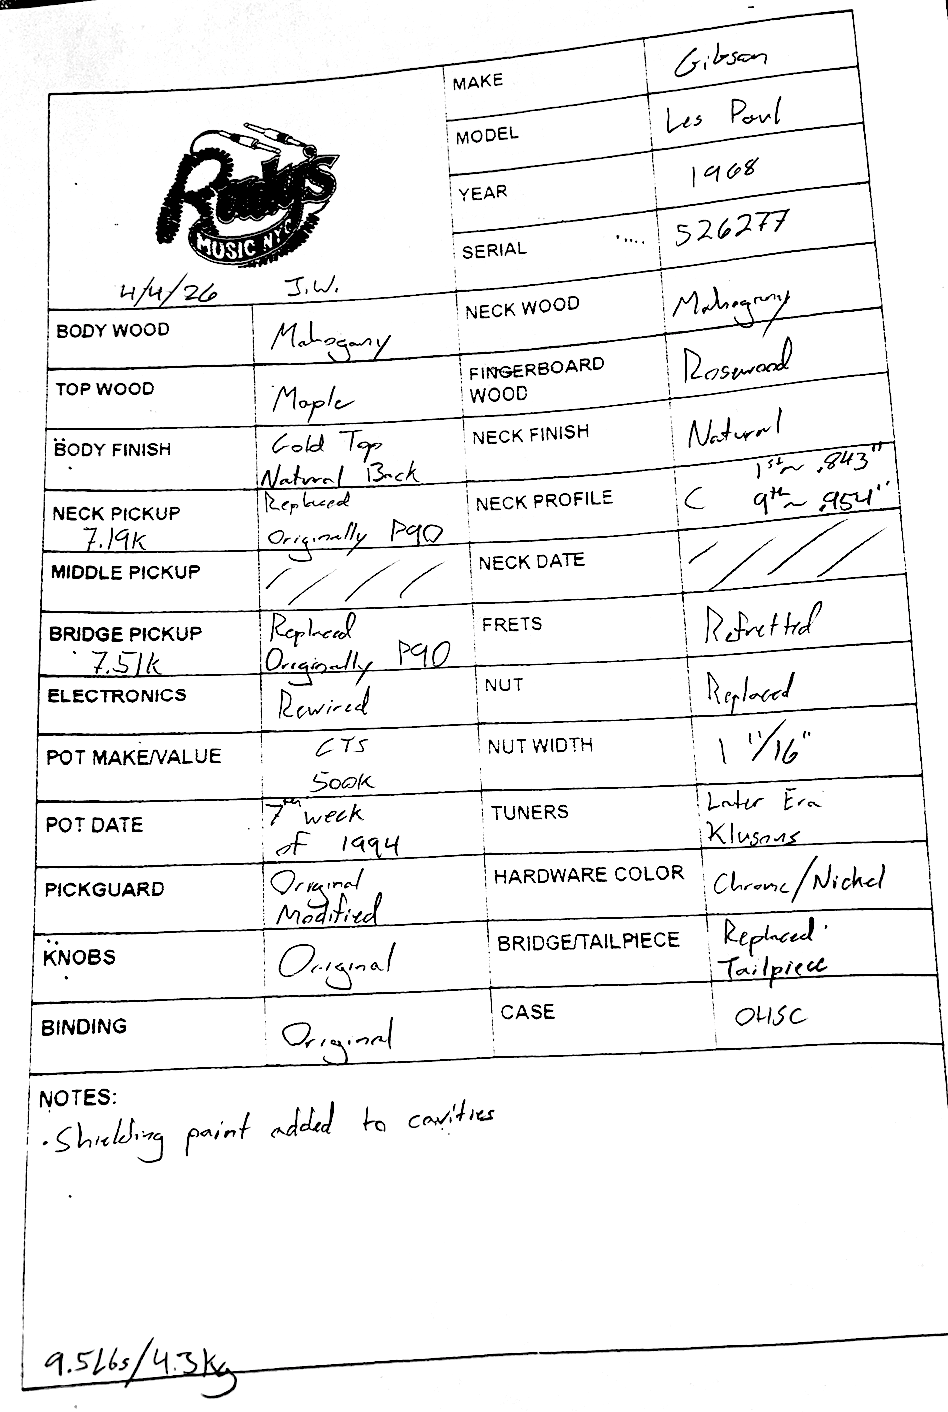 MAKE Gibson
MODEL Les Paul
Rudy's
MUSIC NYC
YEAR 1968
SERIAL 526277
4/4/26 J.W.
BODY WOOD Mahogany NECK WOOD Mahogany
TOP WOOD Maple FINGERBOARD WOOD Rosewood
BODY FINISH Gold Top Natural Back NECK FINISH Natural
NECK PICKUP 7.19K Replaced Originally P90 NECK PROFILE C 1st ~ .843" 9th ~ .954"
MIDDLE PICKUP / / / / NECK DATE / / / /
BRIDGE PICKUP 7.51K Replaced Originally P90 FRETS Refretted
ELECTRONICS Rewired NUT Replaced
POT MAKE/VALUE CTS 500K NUT WIDTH 1 11/16"
POT DATE 7th week of 1994 TUNERS Later Era Klusons
PICKGUARD Original Modified HARDWARE COLOR Chrome/Nickel
KNOBS Original BRIDGE/TAILPIECE Replaced Tailpiece
BINDING Original CASE OHSC
NOTES:
• Shielding paint added to cavities
9.5Lbs/4.3Kg